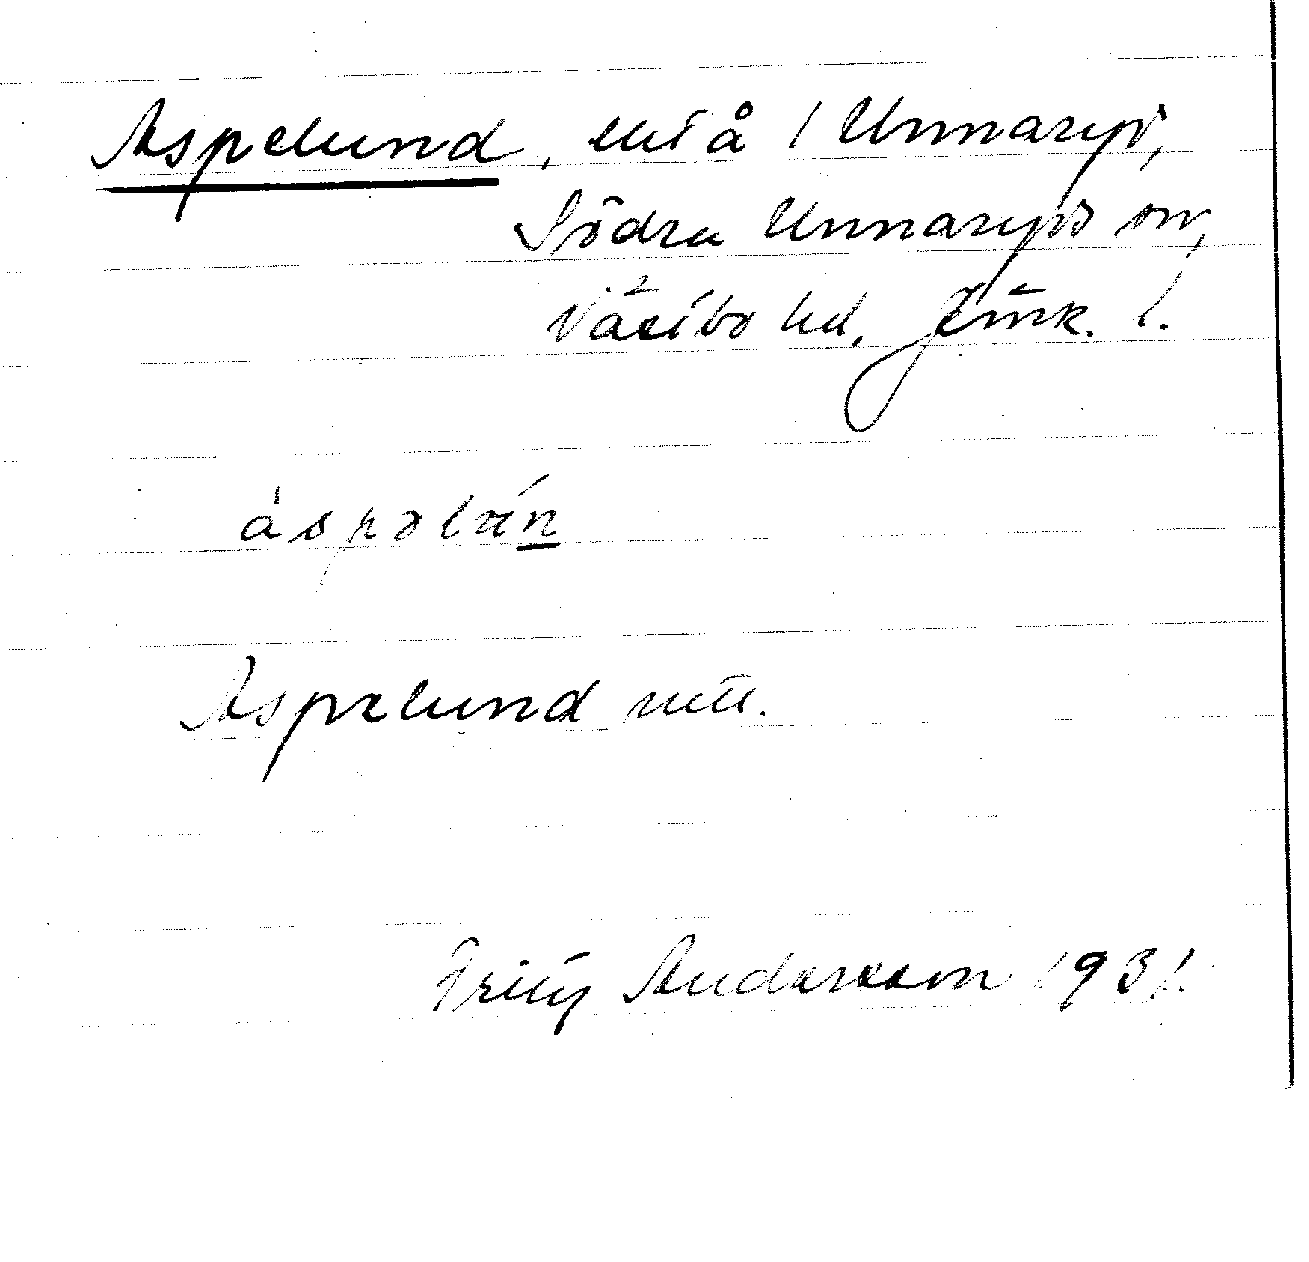 Aspelund, utf å 1 Unnaryd,
Södra Unnaryds sn,
Västbo hd, Jönk. l.
áspəlún
Aspelund
Fritz Andersson 1931.